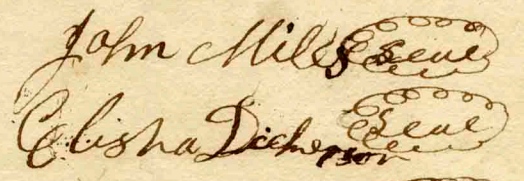 John Mills Seal
Elisha Dickerson Seal